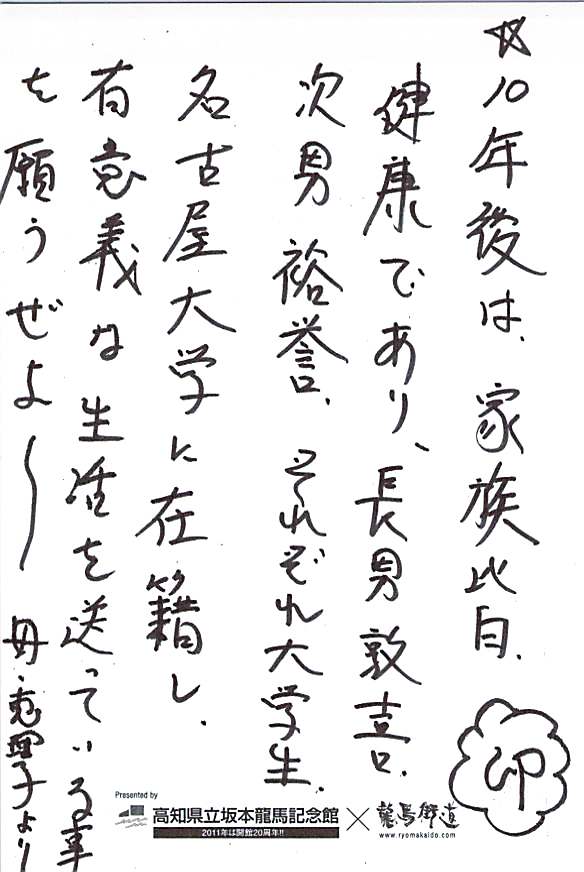 ☆10年後は、家族皆、
健康であり、長男敦吉、
次男裕誉、それぞれ大学生、
名古屋大学に在籍し、
有意義な生活を送っている事
を願うぜよ〜 母・恵理子より
卯
Presented by
高知県立坂本龍馬記念館×龍馬街道
2011年は開館20周年!!
www.ryomakaido.com